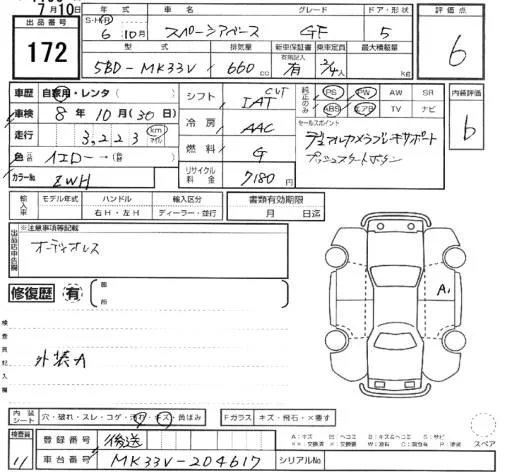 7月10日
出品番号 172
年式 S・H・R 6年10月
車名 スペーシアベース
グレード GF
ドア・形状 5
評価点 6
型式 5BD-MK33V
排気量 660cc
新車保証書 有 有無記入
乗車定員 2/4人
最大積載量 kg
車歴 自家用・レンタ( )
車検 8年10月(30日)
走行 3,223 km マイル
色 イエロー→
カラーNo. ZWH
シフト CVT IAT
冷房 AAC
燃料 G
リサイクル料金 7180円
純正のみ PS PW AW SR
ABS エアB TV ナビ
内装評価 b
セールスポイント
デュアルカメラブレーキサポート
プッシュスタートボタン
輸入車 モデル年式 ハンドル 右H・左H 輸入区分 ディーラー・並行
書類有効期限 月 日迄
出品店申告欄 ※注意事項等記載
オーディオレス
修復歴 有 箇所
A1
検査記入欄
外装A
内装シート 穴・破れ・スレ・コゲ・汚れ・キズ・黄ばみ
Fガラス キズ・飛石・×要す
スペア
検査員 11
登録番号 後送
車台番号 MK33V-204617
シリアルNo.